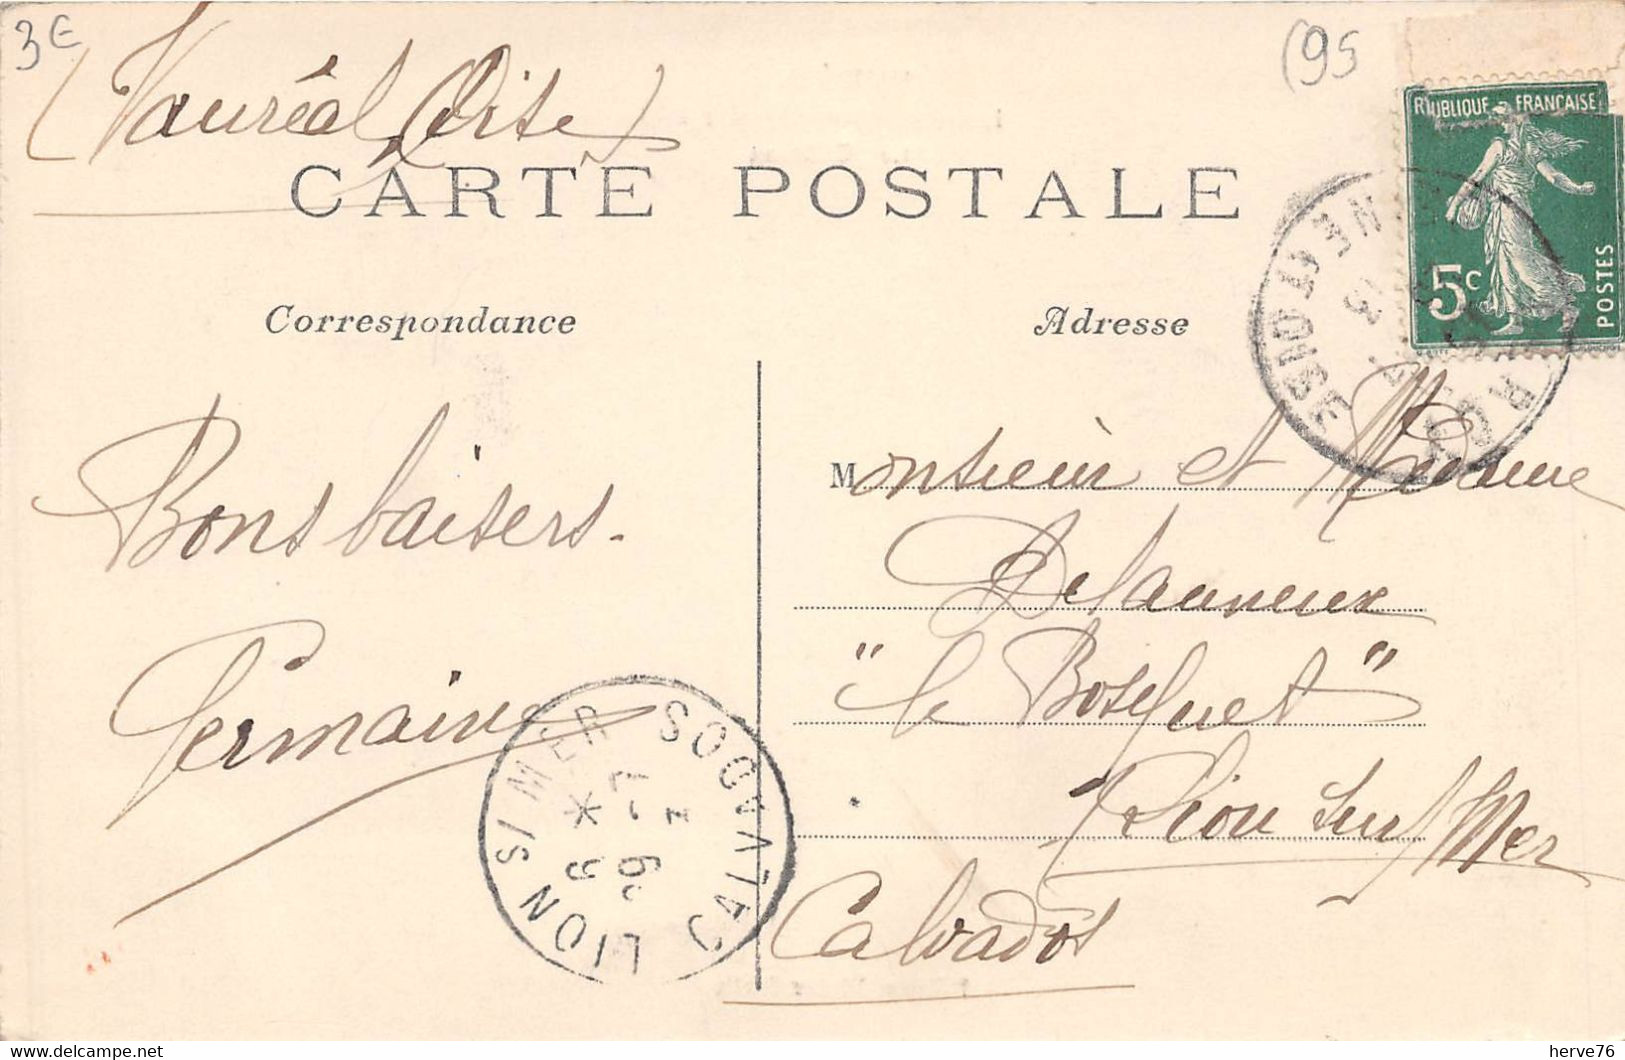 3€
(95
Vauréal (Oise)
RÉPUBLIQUE FRANÇAISE
5c
POSTES
CARTE POSTALE
Correspondance
Adresse
SEINE ET OISE
Bons baisers.
Germaine
Monsieur et Madame
Delauneux
"le Bosquet"
Lion sur Mer
Calvados
LION S/MER
CALVADOS
delcampe.net
hervé76